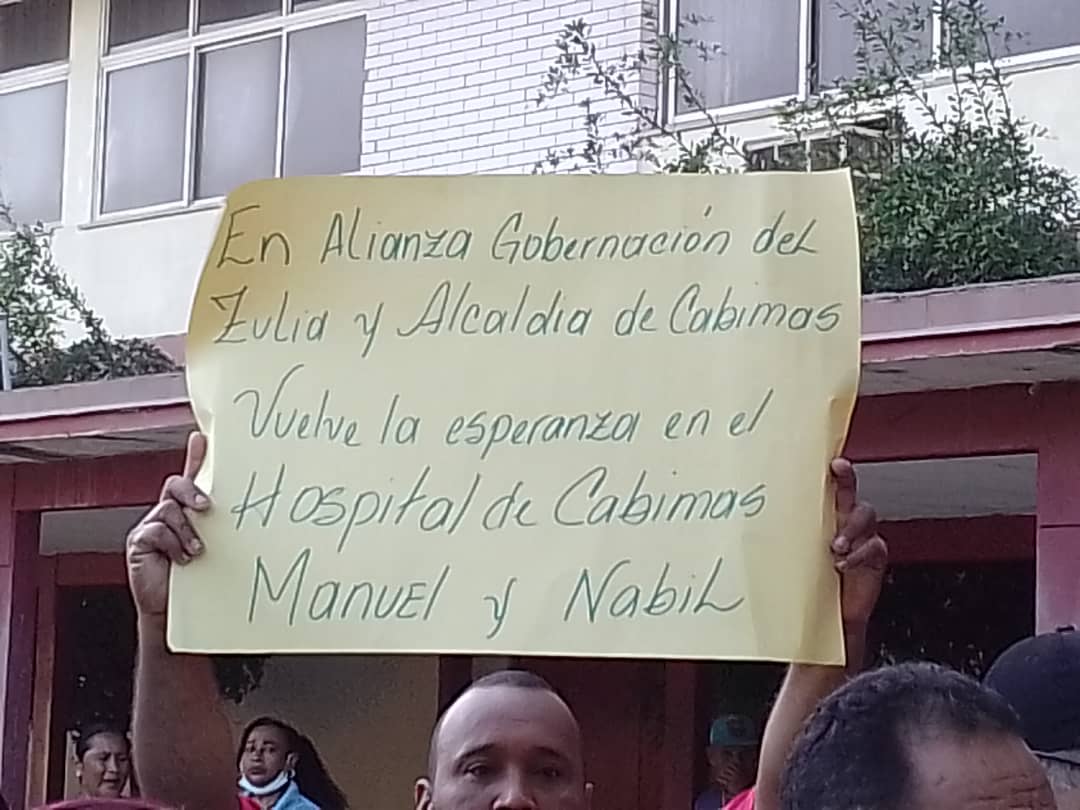 En Alianza Gobernación del
Zulia y Alcaldia de Cabimas
Vuelve la esperanza en el
Hospital de Cabimas
Manuel y Nabil